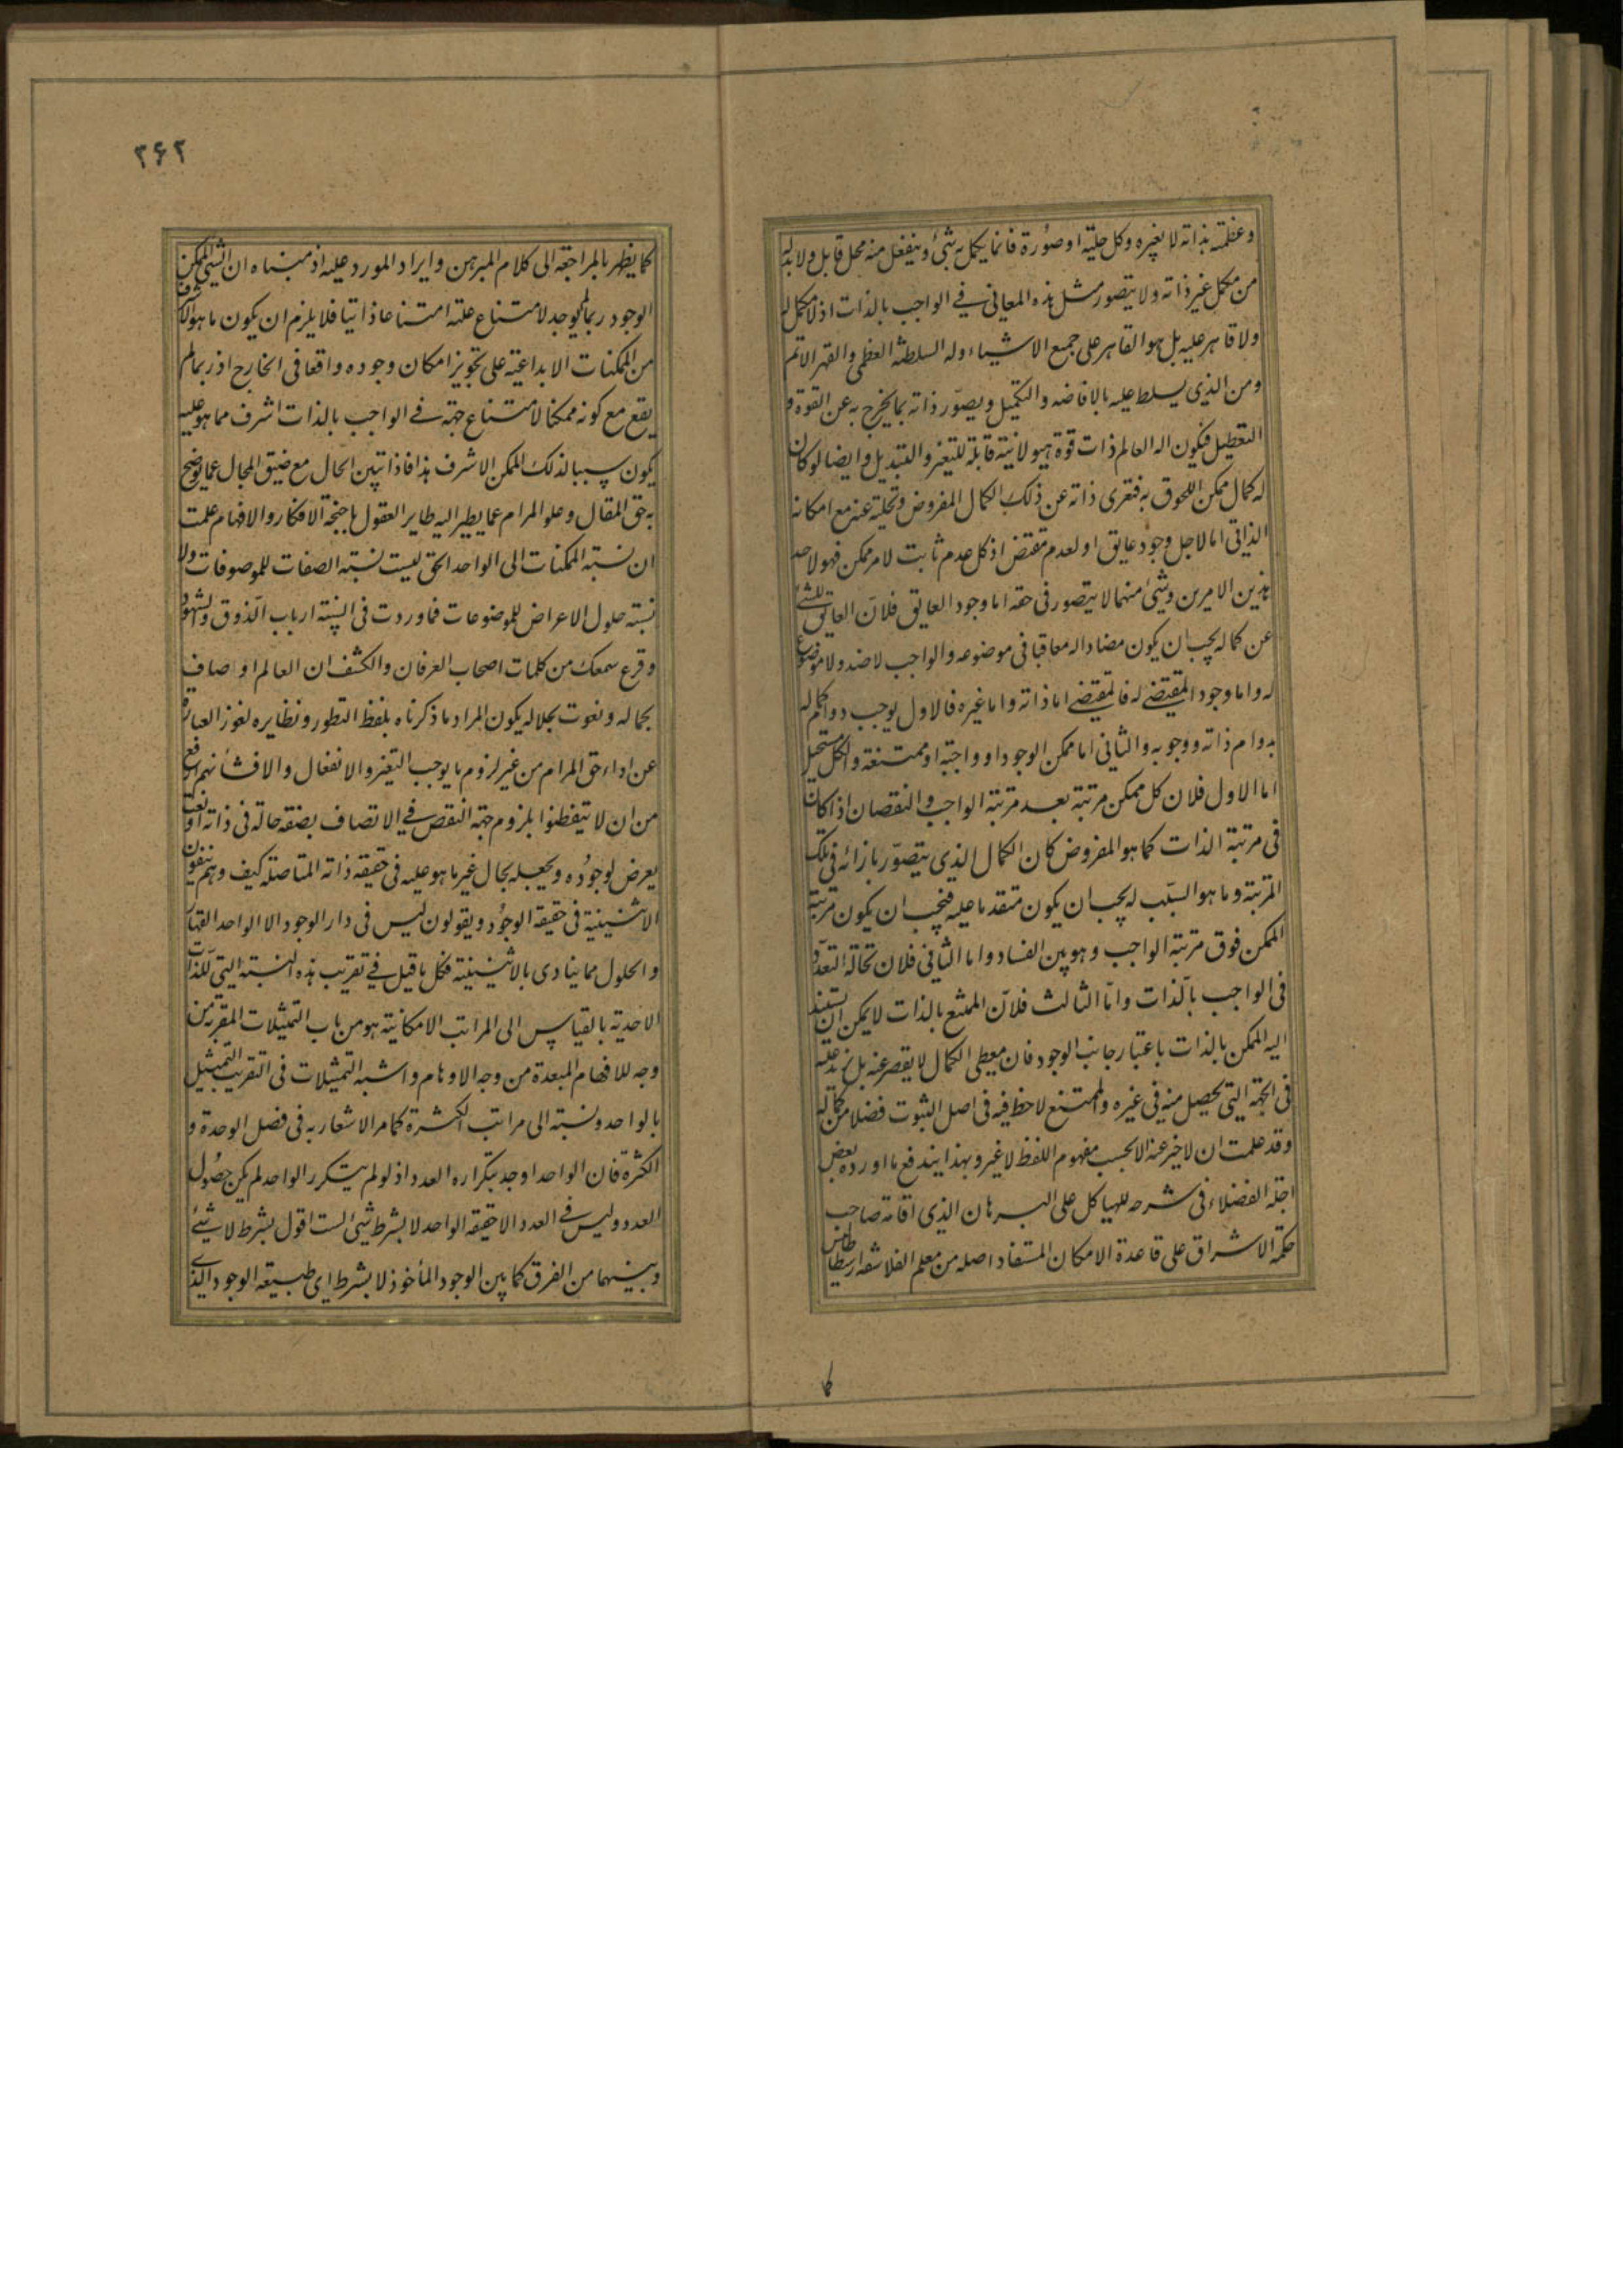 وعظمته بذاته لا بغيره وكل حلية او صورة فانما يكمل به شئ وينفعل منه محل قابل ولا بد له
من مكمل غير ذاته ولا يتصور مثل هذه المعانی فے الواجب بالذات اذ لا مكمل له
ولا قاهر عليه بل هو القاهر على جميع الاشياء وله السلطنة العظمى والقهر الاتم
ومن الذی يسلط عليه بالافاضه والتكميل ويصوّر ذاته بما يخرج به عن القوة و
التعطيل فيكون اله العالم ذات قوة هيولانية قابلة للتغير والتبديل وايضا لو كان
له كمال ممكن اللحوق به فتعری ذاته عن ذلك الكمال المفروض وتخليته عنه مع امكانه
الذاتی اما لاجل وجود عايق او لعدم مقتض اذ كل عدم ثابت لامر ممكن فهو لاحد
هذين الامرين وشئ منهما لا يتصور فی حقه اما وجود العايق فلان العايق للشئ
عن كماله يجب ان يكون مضادا له معاقبا فی موضوعه والواجب لا ضد ولا موضوع
له واما وجود المقتضے له فالمقتضے اما ذاته واما غيره فالاول يوجب دوام كماله
بدوام ذاته ووجوبه والثانی اما ممكن الوجود او واجبة او ممتنعة والكل مستحيل
اما الاول فلان كل ممكن مرتبة بعد مرتبة الواجب والنقصان اذا كان
فی مرتبة الذات كما هو المفروض كان الكمال الذی يتصوّر بازائه فی تلك
المرتبة وما هو السبّب له يجب ان يكون متقدما عليه فيجب ان يكون مرتبة
الممكن فوق مرتبة الواجب وهو بين الفساد واما الثانی فلاستحالة التعدّد
فی الواجب بالّذات وامّا الثالث فلانّ الممتنع بالذات لا يمكن ان يستند
اليه الممكن بالذات باعتبار جانب الوجود فان معطی الكمال لا يقصر عنه بل يزيد عليه
فی الجهة التی يحصل منه فی غيره والممتنع لا حظ فيه فی اصل الثبوت فضلا من كماله
وقد علمت ان لا خبر عنه الا بحسب مفهوم اللفظ لا غير وبهذا يندفع ما اورده بعض
اجلة الفضلاء فی شرحه للهياكل على البرهان الذی اقامه صاحب
حكمة الاشراق على قاعدة الامكان المستفاد اصله من معلم الفلاسفه ارسطاطاليس
كما
۲۶۲
كما يظهر بالمراجعة الى كلام المبرهن وايراد المورد عليه اذ مبناه ان الشئ الممكن
الوجود ربما لم يوجد لامتناع علته امتناعا ذاتيا فلا يلزم ان يكون ما هو الاشرف
من الممكنات الابداعية على تجويز امكان وجوده واقعا فی الخارج اذ ربما لم
يقع مع كونه ممكنا لامتناع جهة فے الواجب بالذات اشرف مما هو عليه
يكون سببا لذلك الممكن الاشرف هذا فاذا تبين الحال مع ضيق المجال عما يوضح
به حق المقال وعلو المرام عما يطير اليه طاير العقول باجنحة الافكار والافهام علمت
ان نسبة الممكنات الى الواحد الحق ليست نسبة الصفات للموصوفات ولا
نسبة حلول الاعراض للموضوعات فما وردت فی السنة ارباب الّذوق والشهود
وقرع سمعك من كلمات اصحاب العرفان والكشف ان العالم اوصاف
لجماله ونعوت لجلاله يكون المراد ما ذكرناه بلفظ التطور ونظايره لعوز العبارة
عن اداء حق المرام من غير لزوم ما يوجب التغير والانفعال والا فشأنهم ارفع
من ان لا يتفطنوا بلزوم جهة النقص فے الاتصاف بصفة حالة فی ذاته او نعت
يعرض لوجوده ويجعله بحال غير ما هو عليه فی حقيقة ذاته المتاصلة كيف وهم ينفون
الاثنينية فی حقيقة الوجود ويقولون ليس فی دار الوجود الا الواحد القهار
والحلول مما ينادی بالاثنينية فكل ما قيل فے تقريب هذه النسبة التی للّذات
الاحدية بالقياس الى المراتب الامكانية هو من باب التمثيلات المقربة من
وجه للافهام المبعدة من وجه للاوهام واشبه التمثيلات فی التقريب التمثيل
بالواحد ونسبته الى مراتب الكثرة كما مر الاشعار به فی فصل الوحدة و
الكثرة فان الواحد اوجد بتكراره العدد اذ لو لم يتكرر الواحد لم يكن حصُول
العدد وليس فے العدد الا حقيقة الواحد لا بشرط شئ لست اقول بشرط لا شئ
وبينهما من الفرق كما بين الوجود المأخوذ لا بشرط ای طبيعة الوجود الذی